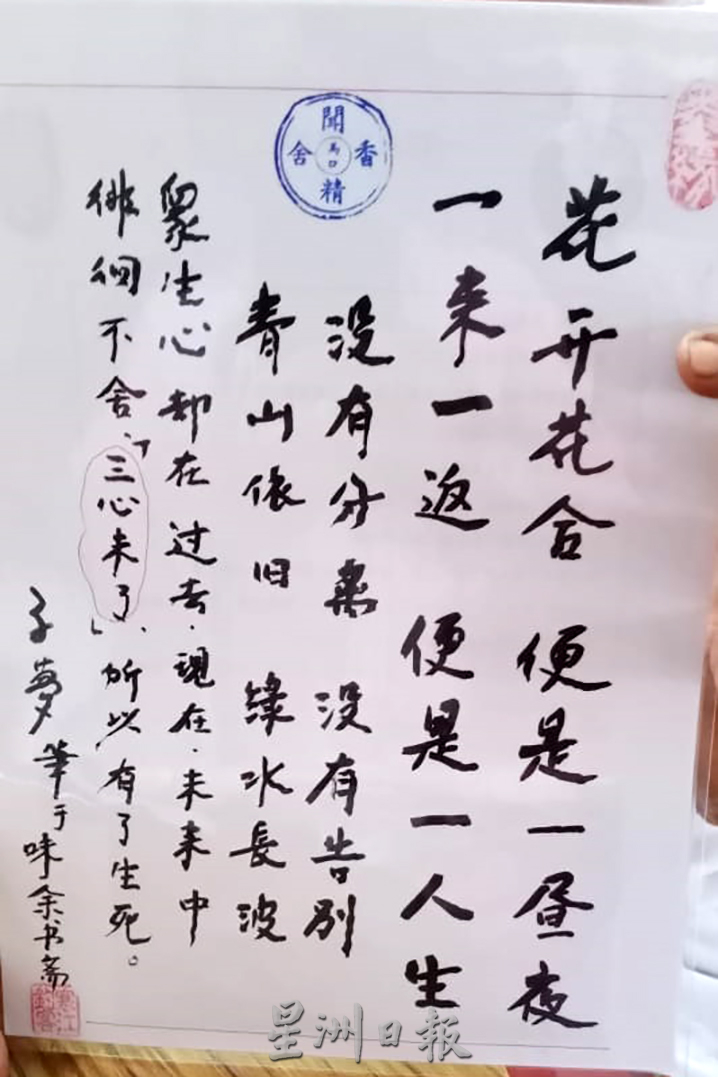 花开花合 便是一昼夜
一来一返 便是一人生
没有分离 没有告别
青山依旧 绿水長波
眾生心却在过去·现在·未来中
徘徊不舍,「三心未了」,所以有了生死。
子夢 筆于味余书斋
聞香精舍
馬口
寒江釣雪
星洲日報